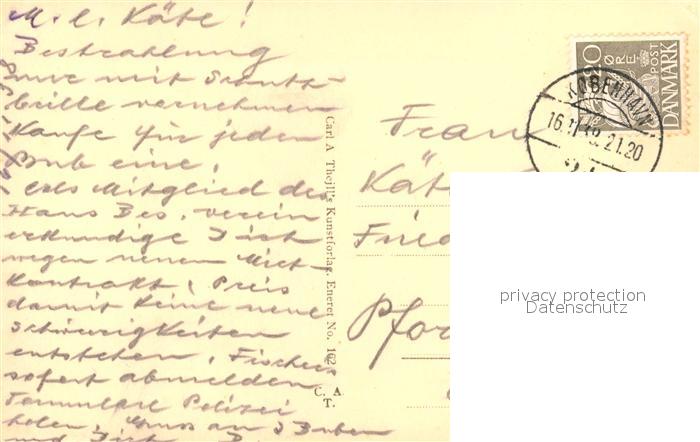 M. l. Käte!
Bestrahlung
nur mit Schutz-
brille vornehmen
Kaufe für jeden
Bub eine.
Als Mitglied des
Haus Bes. verein
erkundige Dich
wegen neuem Miet-
kontrakt, Preis
damit keine neue
Schwierigkeiten
entstehen. Fischers
sofort abmelden
Formulare Polizei
holen. Gruss an 3 Buben
und Dich
Carl A Thejll's Kunstforlag. Eneret No. 102
C. A.
T.
ØRE
POST
DANMARK
KØBENHAVN
21.20
Frau
Käte
Fried
Pfor
privacy protection
Datenschutz